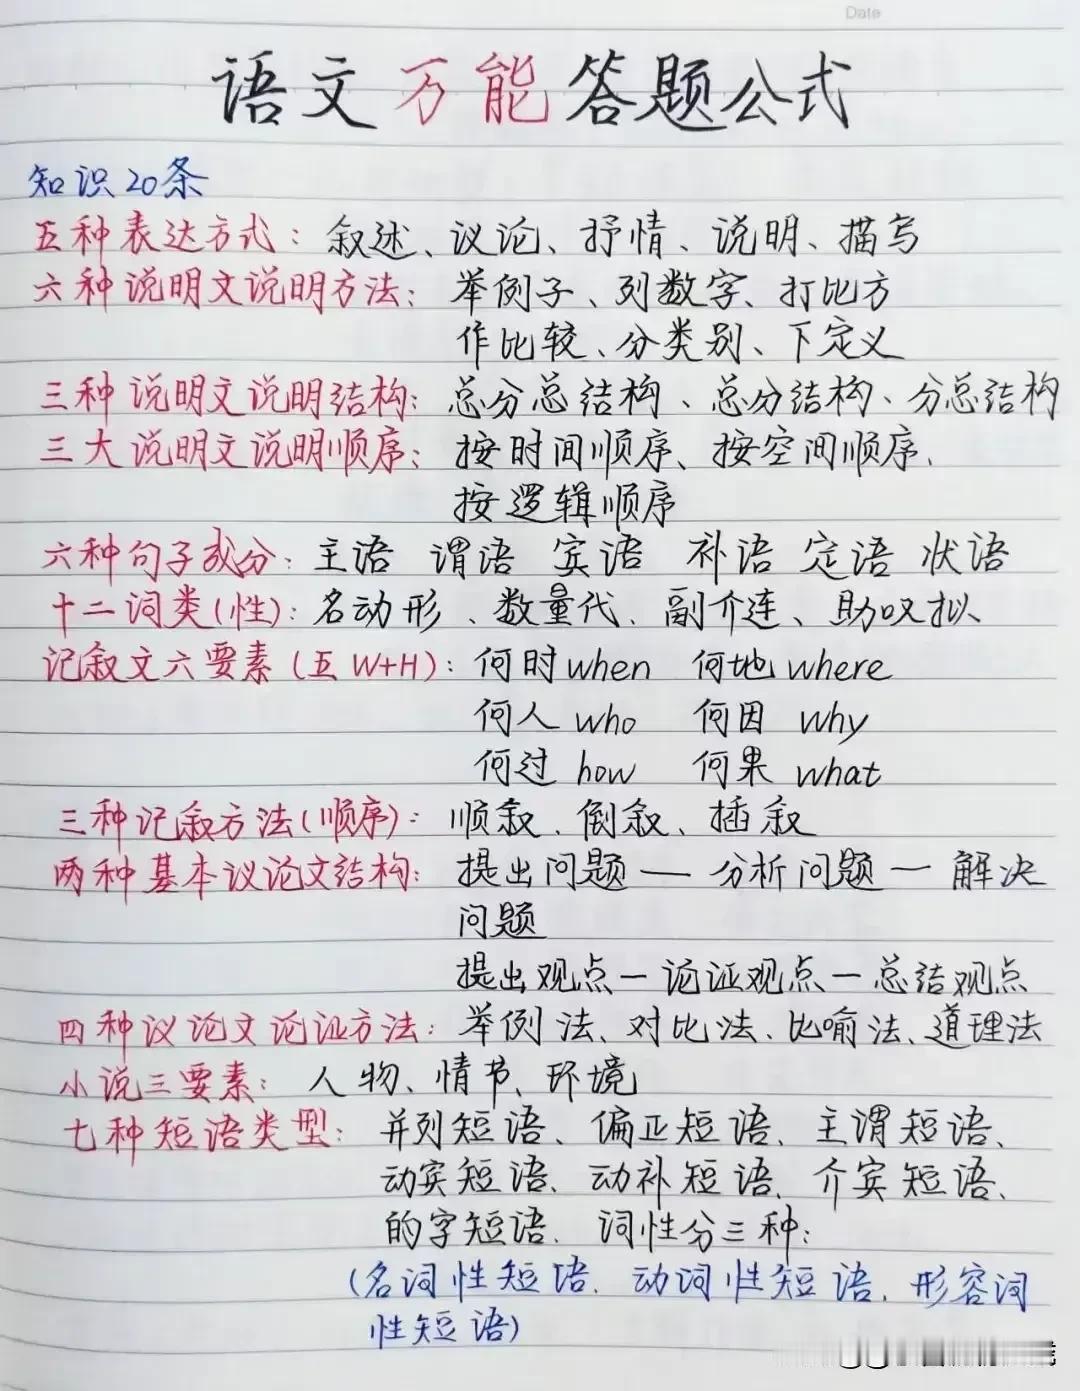 Date
语文万能答题公式
知识20条
五种表达方式：叙述、议论、抒情、说明、描写
六种说明文说明方法：举例子、列数字、打比方
作比较、分类别、下定义
三种说明文说明结构：总分总结构、总分结构、分总结构
三大说明文说明顺序：按时间顺序、按空间顺序、
按逻辑顺序
六种句子成分：主语 谓语 宾语 补语 定语 状语
十二词类(性)：名动形、数量代、副介连、助叹拟、
记叙文六要素(五W+H)：何时when 何地where
何人who 何因why
何过how 何果what
三种记叙方法(顺序)：顺叙、倒叙、插叙
两种基本议论文结构：提出问题—分析问题—解决
问题
提出观点—论证观点—总结观点
四种议论文论证方法：举例法、对比法、比喻法、道理法
小说三要素：人物、情节、环境
七种短语类型：并列短语、偏正短语、主谓短语、
动宾短语、动补短语、介宾短语、
的字短语、词性分三种：
(名词性短语、动词性短语、形容词
性短语)